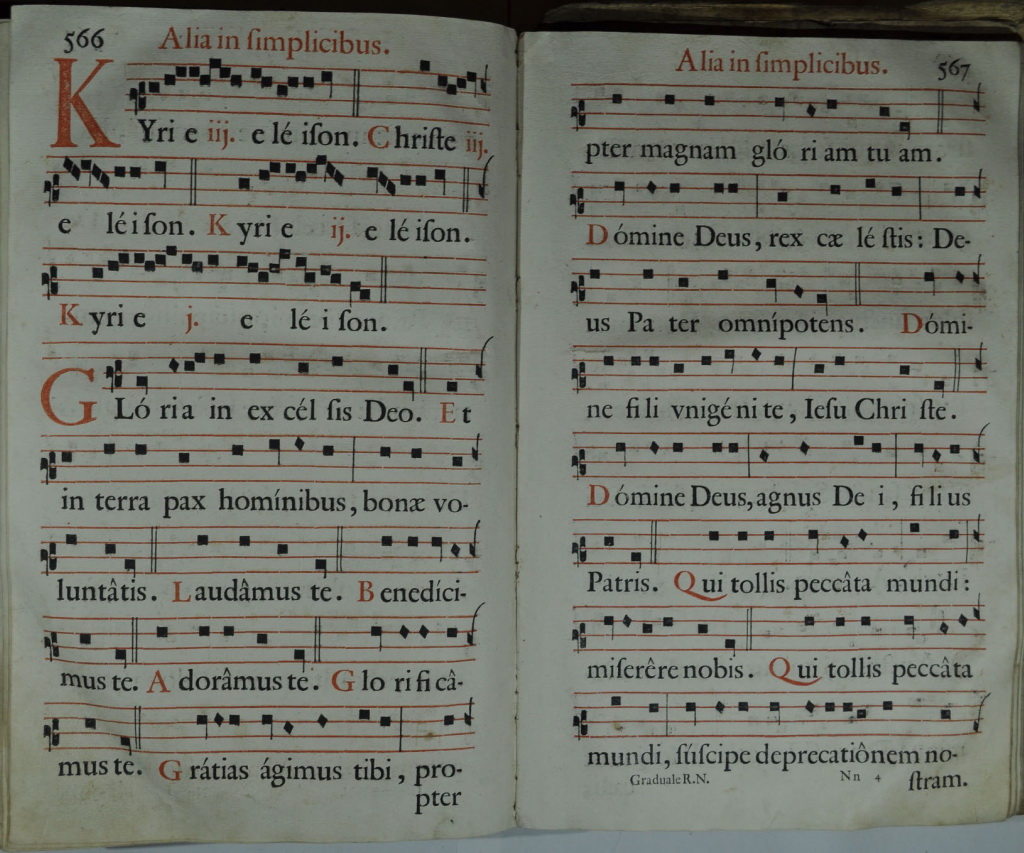 566 Alia in ſimplicibus.
KYri e iij. e lé iſon. Chriſte iij.
e lé i ſon. Kyri e ij. e lé iſon.
Kyri e j. e lé i ſon.
GLó ria in ex cél ſis Deo. Et
in terra pax homínibus, bonæ vo-
luntâtis. Laudâmus te. Benedíci-
mus te. Adorâmus te. Glo ri fi câ-
mus te. Grátias ágimus tibi, pro-
pter
Alia in ſimplicibus. 567
pter magnam gló ri am tu am.
Dómine Deus, rex cæ lé ſtis: De-
us Pa ter omnípotens. Dómi-
ne fi li vnigé ni te, Ieſu Chri ſte.
Dómine Deus, agnus De i, fi li us
Patris. Qui tollis peccâta mundi:
miſerêre nobis. Qui tollis peccâta
mundi, ſúſcipe deprecatiônem no-
Graduale R.N. Nn 4 ſtram.